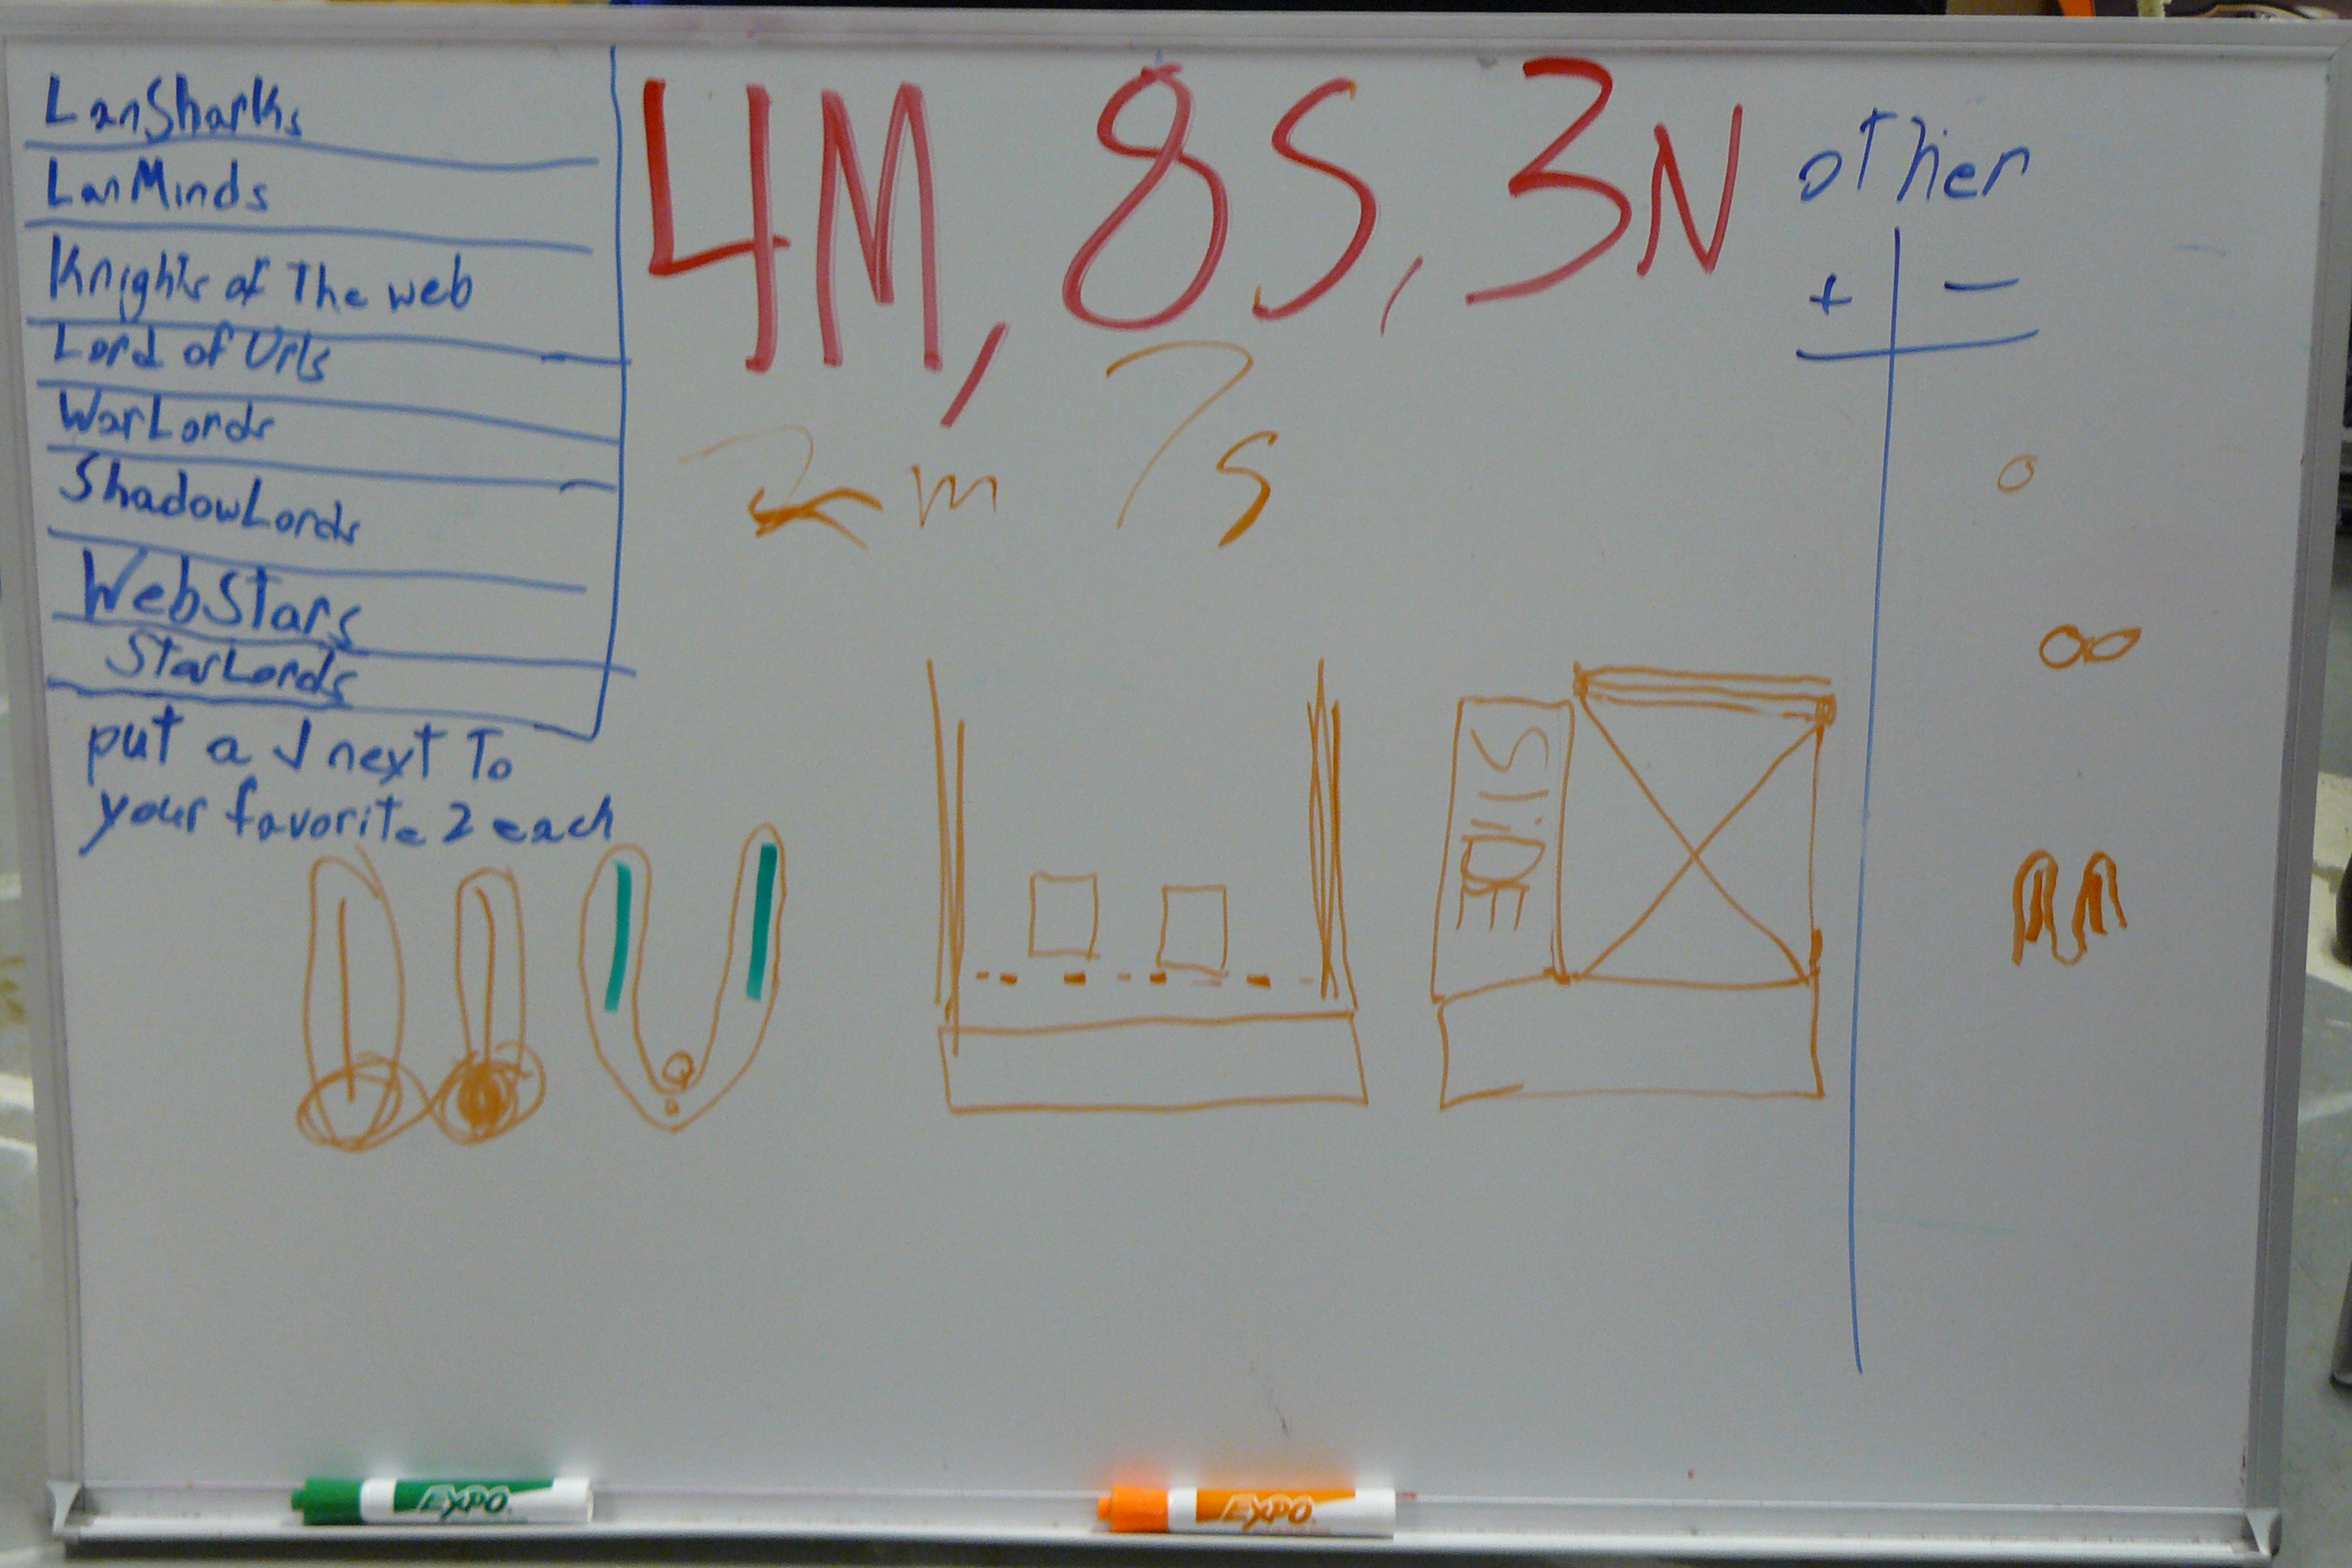 LanSharks
LanMinds
Knights of The web
Lord of Urls
WarLords
ShadowLords
WebStars
StarLords
put a √ next To
your favorite 2 each
4M, 8S, 3N
2 m 7s
other
+ -
SIDE
EXPO
EXPO